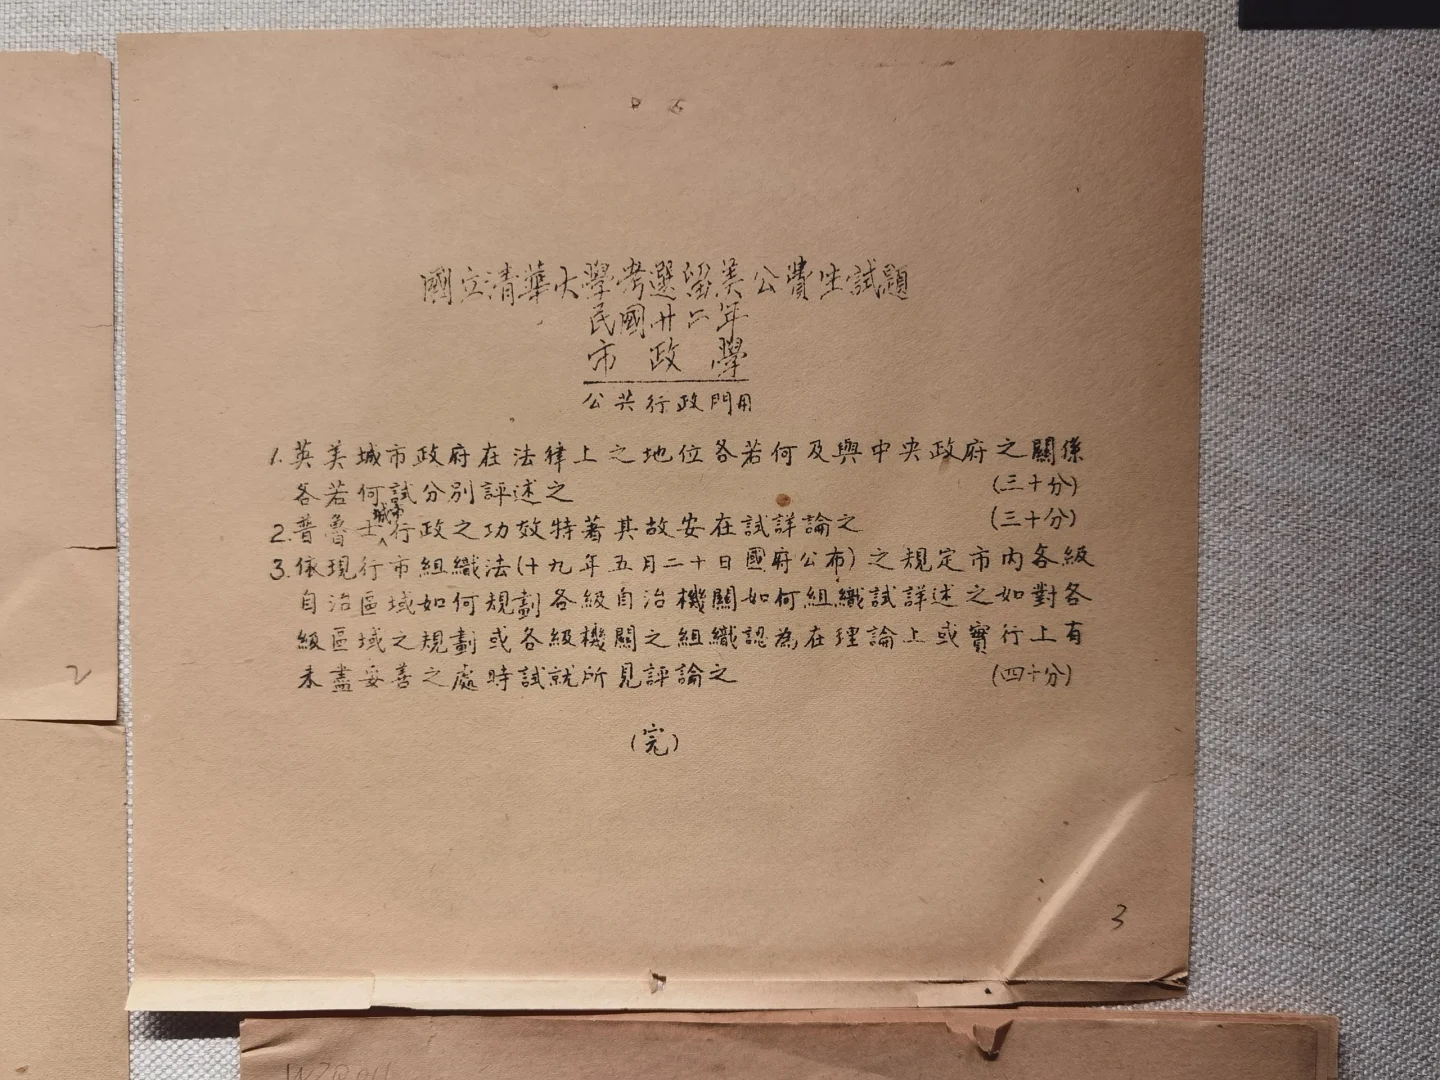 國立清華大學考選留美公費生試題
民國廿二年
市政學
公共行政門用
1.英美城市政府在法律上之地位各若何及與中央政府之關係
各若何試分別評述之 (三十分)
2.普魯士城市行政之功效特著其故安在試詳論之 (三十分)
3.依現行市組織法(十九年五月二十日國府公布)之規定市內各級
自治區域如何規劃各級自治機關如何組織試詳述之如對各
級區域之規劃或各級機關之組織認為在理論上或實行上有
未盡妥善之處時試就所見評論之 (四十分)
(完)
3
2